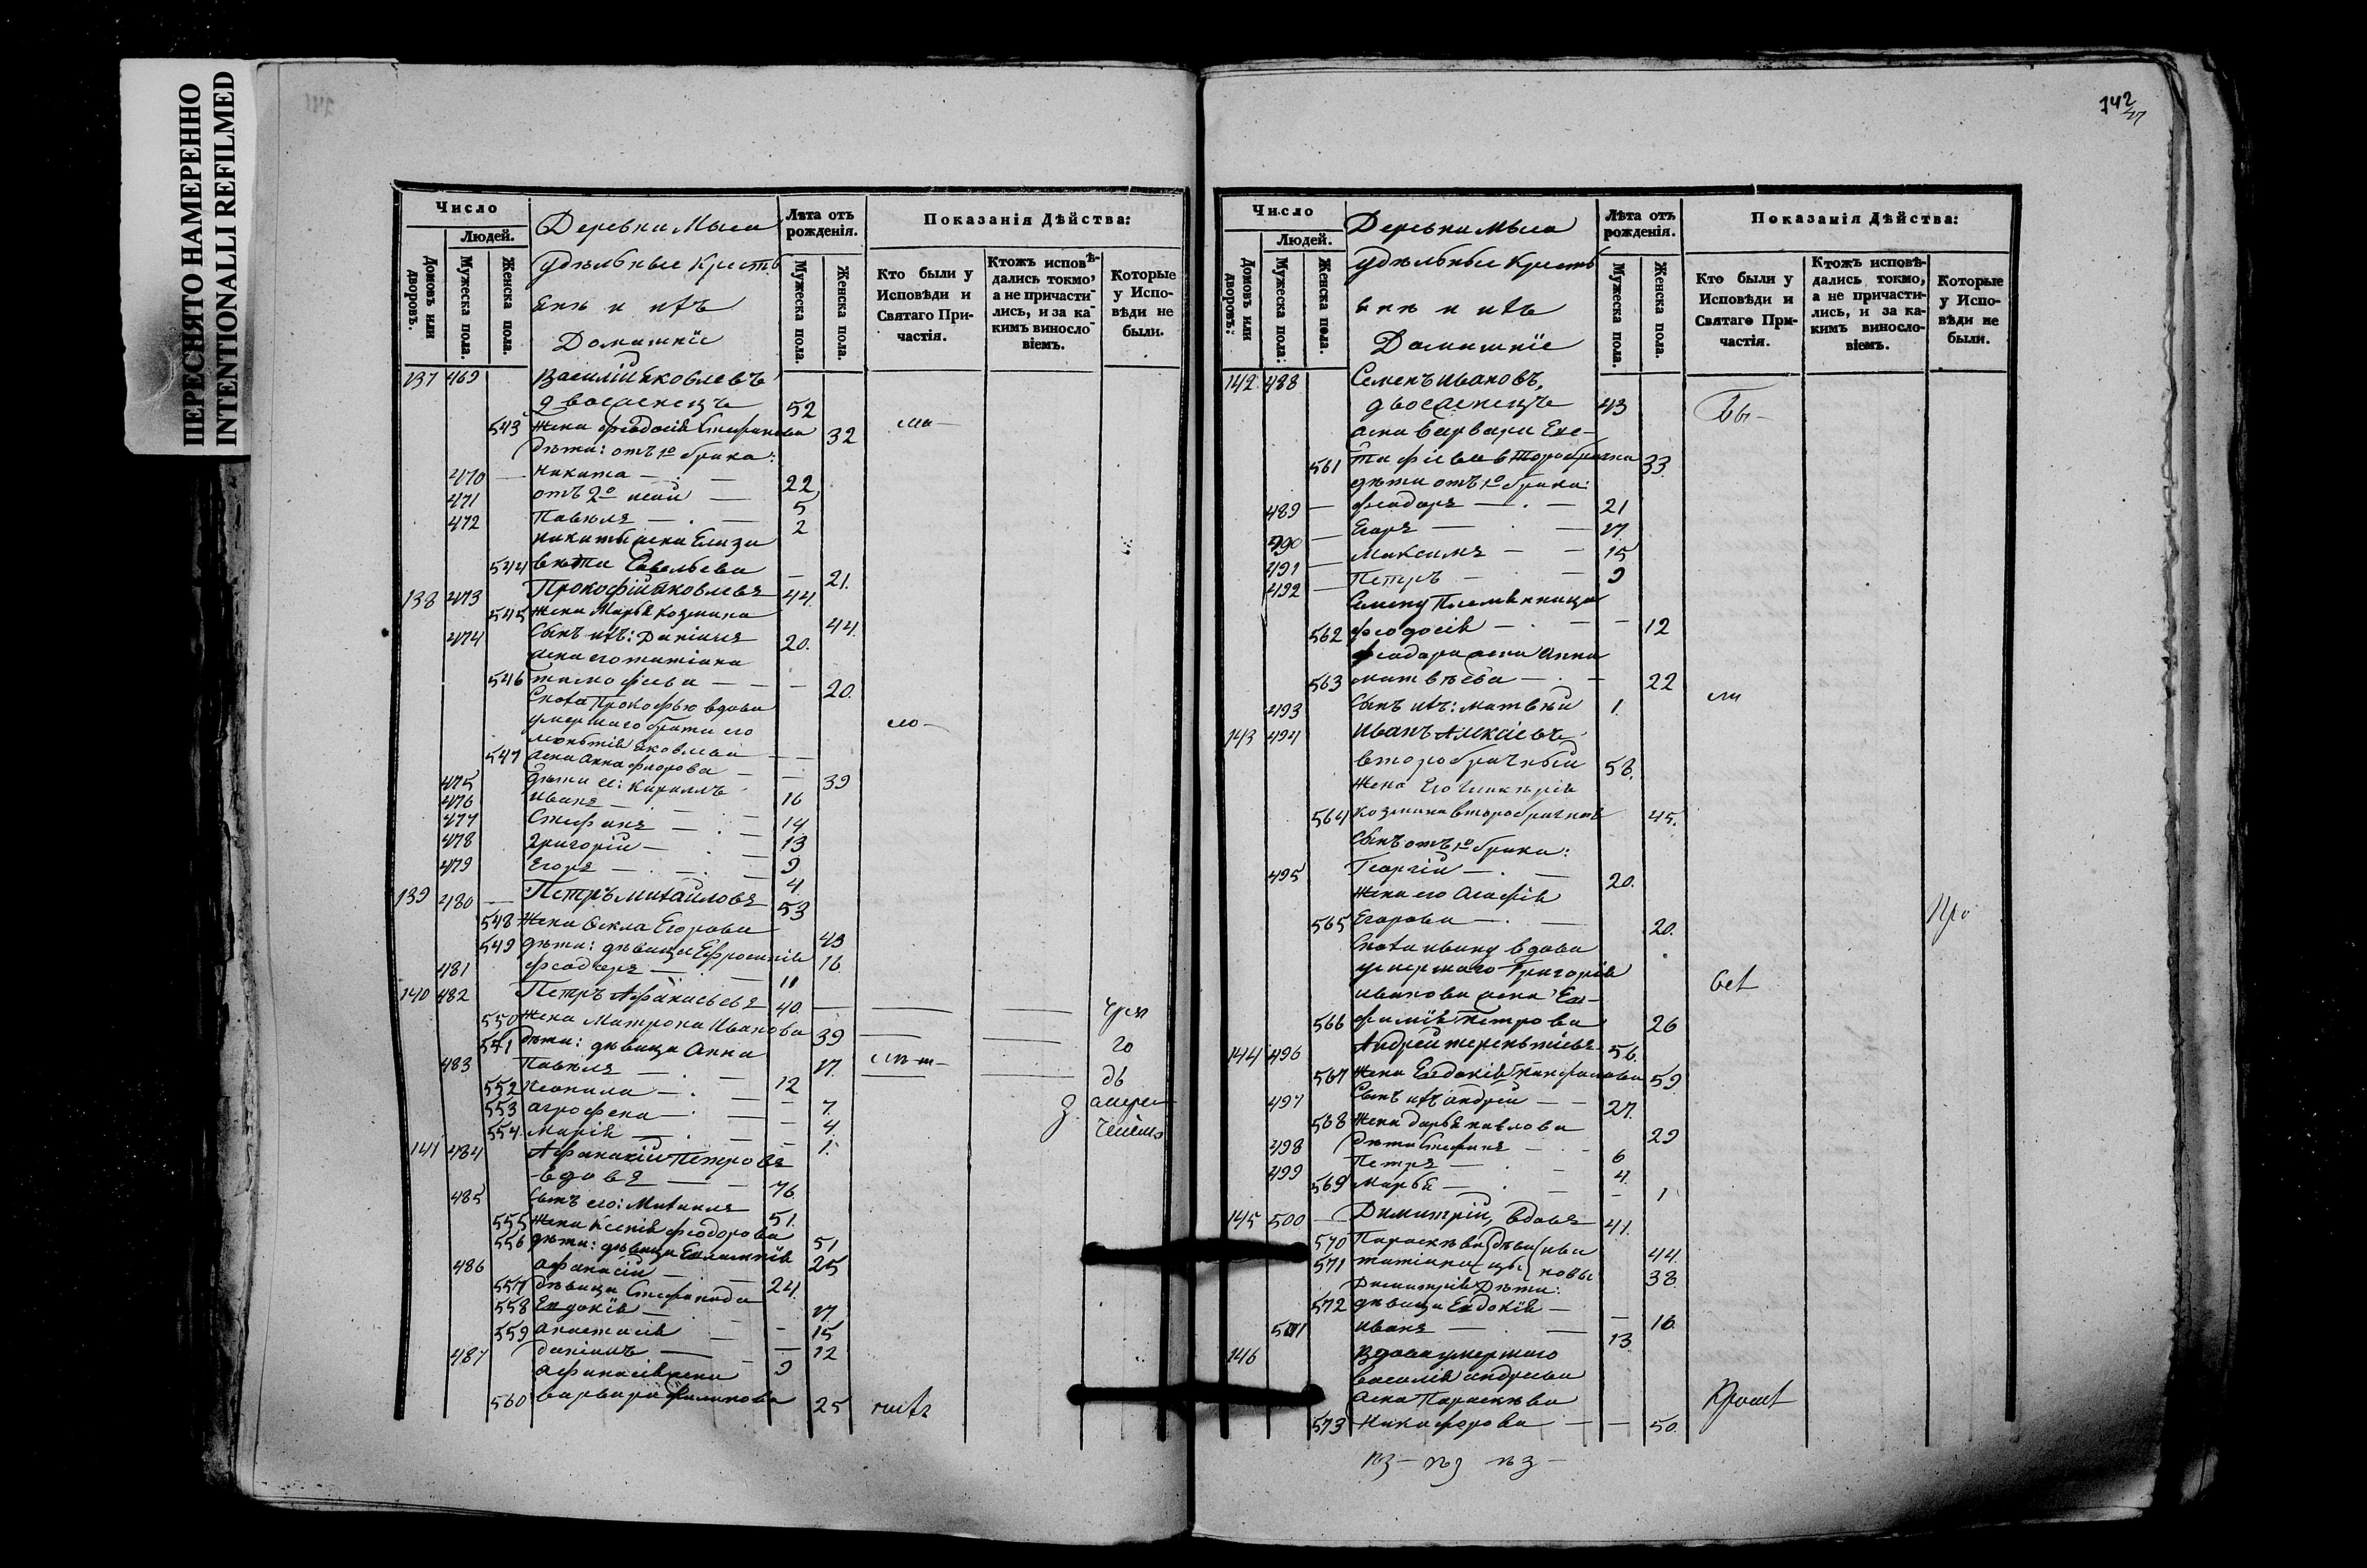 ПЕРЕСНЯТО НАМЕРЕННО
INTENTIONALLI REFILMED
Число
Людей.
Домовъ или дворовъ.
Мужеска пола.
Женска пола.
Деревни Мыса
удѣльные Кресть
яне и ихъ
Домашніе
Лѣта отъ рожденія.
Мужеска пола.
Женска пола.
Показанія Дѣйства:
Кто были у Исповѣди и Святаго Причастія.
Ктожъ исповѣдались токмо, а не причастились, и за какимъ винословіемъ.
Которые у Исповѣди не были.
137 469 Василій Яковлевъ
двоеженецъ 52
543 Жена Феодосія Стефанова 32
дѣти: отъ 1го брака:
470 Никита 22
471 отъ 2й 5
472 Павелъ 2
Никиты жена Елиза
544 вета Савельева 21.
138 473 Прокофій Яковлевъ 44.
545 Жена Марья Козмина 44.
474 Сынъ ихъ: Даніилъ 20.
жена его Татіана
546 Тимофеева 20.
Сноха Прокофью вдова
умершаго брата его
Яковлева
547 жена Анна Флорова 39
475 Дѣти ея: Кириллъ 16
476 Иванъ 14
477 Стефанъ 13
478 Григорій 9
479 Егоръ 4.
139 480 Петръ Михайловъ 53
548 Жена Фекла Егорова 43
549 дѣти: дѣвица Евфросинія 16
481 Феодоръ 11
140 482 Петръ Афанасьевъ 40.
550 Жена Матрона Иванова 39
551 Дѣти: дѣвица Анна 17.
483 Павелъ 12
552 Неонила 7.
553 Агрофена 4.
554. Марія 1.
141 484 Афанасій Петровъ
вдовъ 76
485 Сынъ его: Михаилъ 51.
555 Жена Ксенія Феодорова 51
556 дѣти: дѣвица 25
486 Афанасій 24.
557 Дѣвица Стефанида 17.
558 Евдокія 15
559 Анастасія 12
487 Даніилъ 9
Афанасія жена
560 Варвара Филипова 25
142
Число
Людей.
Домовъ или дворовъ.
Мужеска пола.
Женска пола.
Деревни Мыса
удѣльные Кресть
яне и ихъ
Домашніе
Лѣта отъ рожденія.
Мужеска пола.
Женска пола.
Показанія Дѣйства:
Кто были у Исповѣди и Святаго Причастія.
Ктожъ исповѣдались токмо, а не причастились, и за какимъ винословіемъ.
Которые у Исповѣди не были.
142. 488 Семенъ Ивановъ,
двоеженецъ 43
Бы-
жена Варвара Евс-
561 тафіева второбрачна 33.
дѣти отъ 1го брака:
489 Феодоръ 21
490 Егоръ 17.
491 Максимъ 15
492 Петръ 9
Семену Племянница
562 Феодосія 12
Феодора жена Анна
563 Матвѣева 22
ли
493 Сынъ ихъ: Матвѣй 1.
143 494 Иванъ Алексіевъ
второбрачный 58.
Жена Его Гликерія
564 Козмина второбрачная 45.
Сынъ отъ 1го брака:
495 Георгій 20.
Жена его Агафія
565 Егорова 20.
Сноха Ивану вдова
умершаго Григорія
Иванова жена Ев-
566 фимія Петрова 26
144 496 Андрей Терентіевъ 56.
567 Жена Евдокія Панфилова 59.
497 Сынъ ихъ Андрей 27.
568 Жена Дарья Павлова 29
498 Дѣти Стефанъ 6
499 Петръ 4.
569 Марья 1
145 500 Димитрій, вдовъ 41.
570 Параскева дѣви ива 44.
571 Татіана цы новы 38.
Димитрія Дѣти:
572 дѣвица Евдокія 16.
501 Иванъ 13
146 Вдова умершаго
Василія Андреева
жена Параскева
573 Никифорова 50.